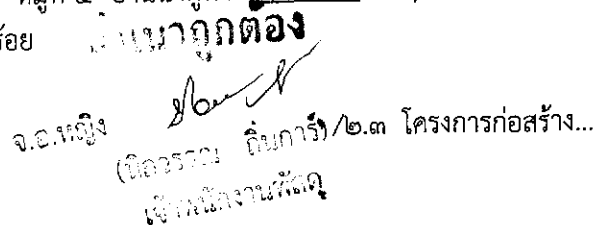 ร้อย สำเนาถูกต้อง
จ.อ.หญิง
(นิลวรรณ ถิ่นการ์) /๒.๓ โครงการก่อสร้าง...
เจ้าพนักงานพัสดุ